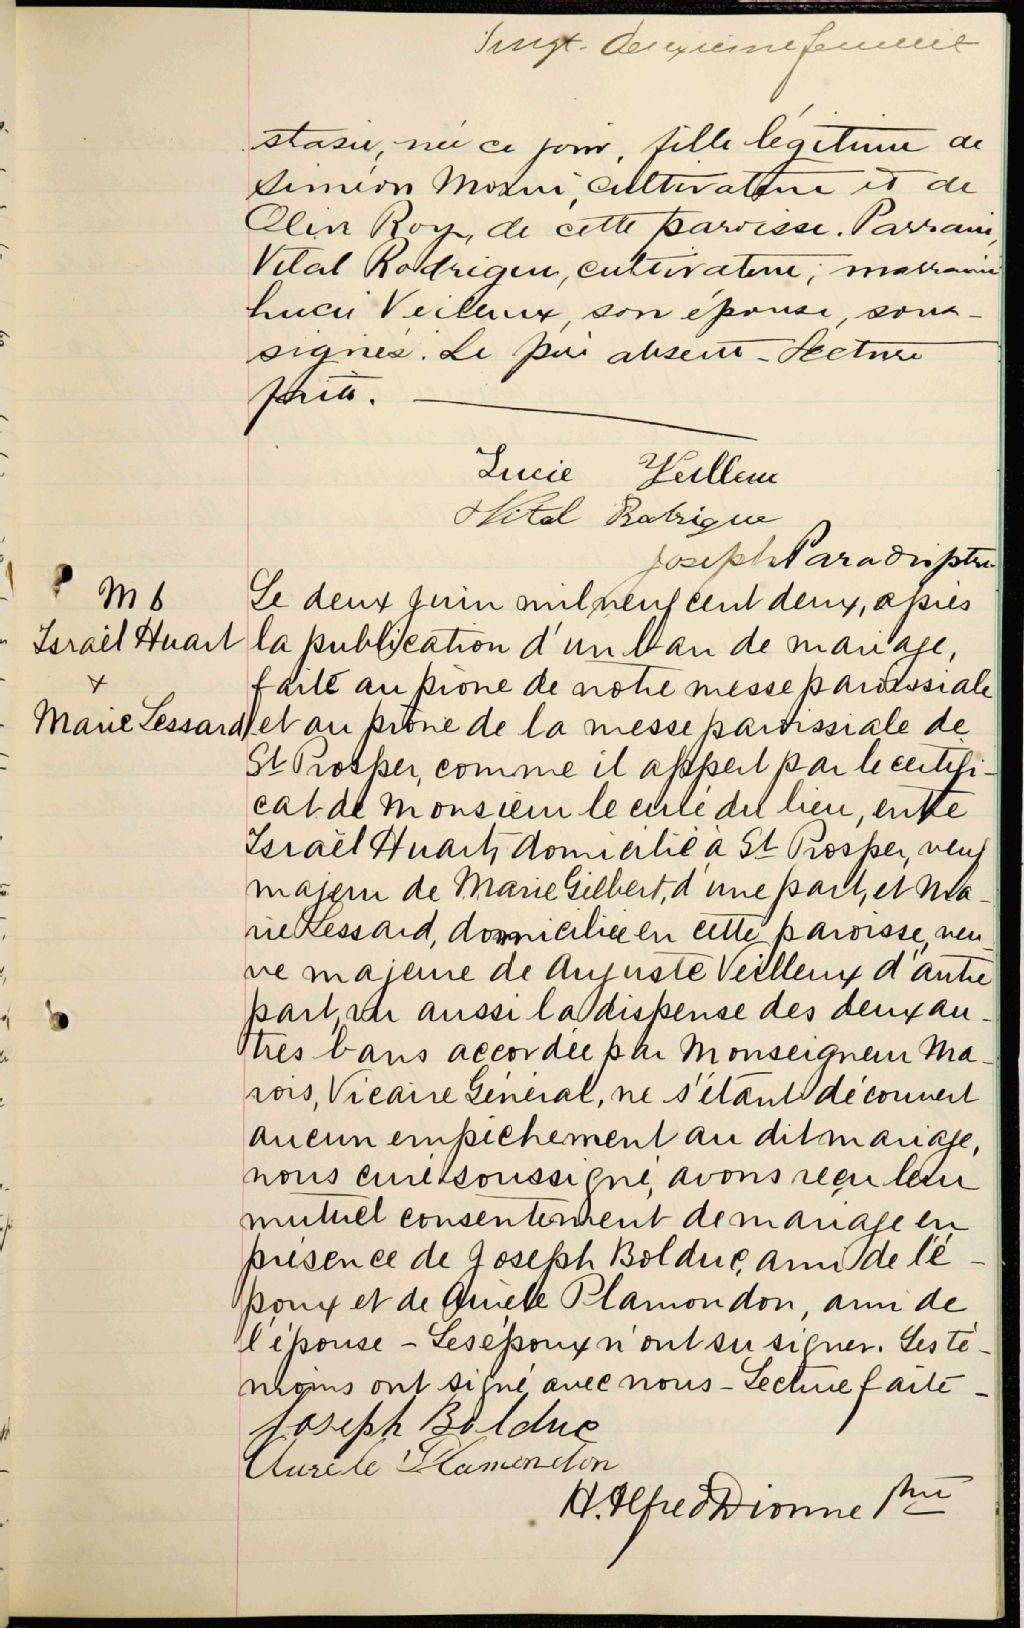 Vingt-deuxième feuillet
stasie, née ce jour, fille légitime de
Siméon Morin, cultivateur et de
Roy, de cette paroisse. Parrain,
Vital Rodrigue, cultivateur; marraine
Lucie Veilleux, son épouse, sous-
signés. Le père absent - Lecture
faite.
Lucie Veilleu
Vital Rodrigue
Joseph Paradis ptre
M 6
Israël Huart
+
Marie Lessard
Le deux juin mil neuf cent deux, après
la publication d'un ban de mariage,
faite au prône de notre messe paroissiale
et au prône de la messe paroissiale de
St Prosper, comme il appert par le certifi-
cat de Monsieur le curé du lieu, entre
Israël Huart, domicilié à St Prosper, veuf
majeur de Marie Gilbert, d'une part, et Ma-
rie Lessard, domiciliée en cette paroisse, veu-
ve majeure de Auguste Veilleux d'autre
part, vu aussi la dispense des deux au-
tres bans accordée par Monseigneur Ma-
rois, Vicaire Général, ne s'étant découvert
aucun empêchement au dit mariage,
nous curé soussigné, avons reçu leur
mutuel consentement de mariage en
présence de Joseph Bolduc, ami de l'é-
poux et de Aurèle Plamondon, ami de
l'épouse - Les époux n'ont su signer. Les té-
moins ont signé avec nous - Lecture faite -
Joseph Bolduc
Aurèle Plamondon
H. Alfred Dionne ptre